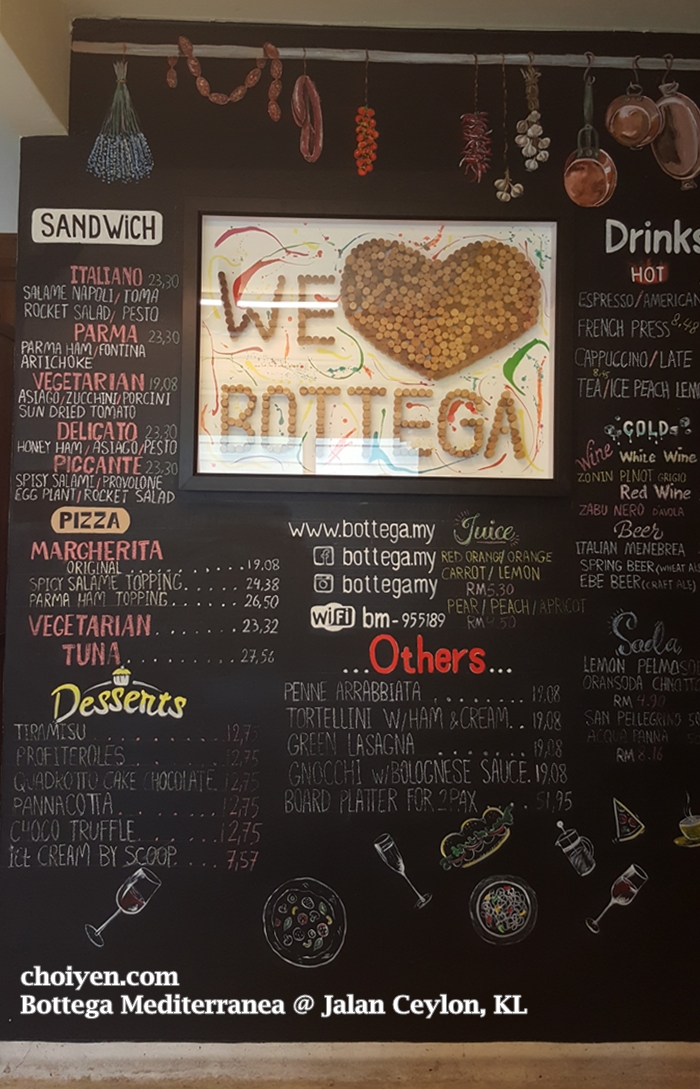 SANDWiCH
ITALIANO 23,30
SALAME NAPOLI/TOMA
ROCKET SALAD/ PESTO
PARMA 23,30
PARMA HAM/FONTINA
ARTICHOKE
VEGETARIAN 19,08
ASIAGO/ZUCCHINI/PORCINI
SUN DRIED TOMATO
DELICATO 23,30
HONEY HAM/ASIAGO/PESTO
PICCANTE 23,30
SPISY SALAMI/PROVOLONE
EGG PLANT/ROCKET SALAD
PIZZA
MARGHERITA
ORIGINAL ........ 19,08
SPICY SALAME TOPPING...... 24,38
PARMA HAM TOPPING...... 26,50
VEGETARIAN ....... 23,32
TUNA ......... 27,56
Desserts
TIRAMISU ...... 12,75
PROFITEROLES ..... 12,75
QUADROTTO CAKE CHOCOLATE. 12,75
PANNACOTTA ...... 12,75
CHOCO TRUFFLE..... 12,75
iCE CREAM BY SCOOP. .... 7,57
WE
BOTTEGA
www.bottega.my
bottega.my
bottegamy
WiFi bm-955189
Juice
RED ORANG/ ORANGE
CARROT/ LEMON
RM5,30
PEAR/PEACH/APRICOT
...Others...
PENNE ARRABBIATA ........ 19,08
TORTELLINI W/HAM & CREAM.. 19,08
GREEN LASAGNA ....... 19,08
GNOCCHI W/BOLOGNESE SAUCE. 19,08
BOARD PLATTER FOR 2PAX .... 51,95
Drinks
HOT
ESPRESSO/AMERICAN
FRENCH PRESS 8,48
CAPPUCCINO/LATE
TEA/ICE PEACH LEM
COLD
Wine White Wine
ZONIN PINOT GRIGIO
Red Wine
ZABU NERO D'AVOLA
Beer
ITALIAN MENEBREA
SPRING BEER (WHEAT AL
EBE BEER (CRAFT ALE)
Soda
LEMON PELMOS
ORANSODA CHINOTTO
RM 4.90
SAN PELLEGRINO
ACQUA PANNA
RM 8.16
choiyen.com
Bottega Mediterranea @ Jalan Ceylon, KL